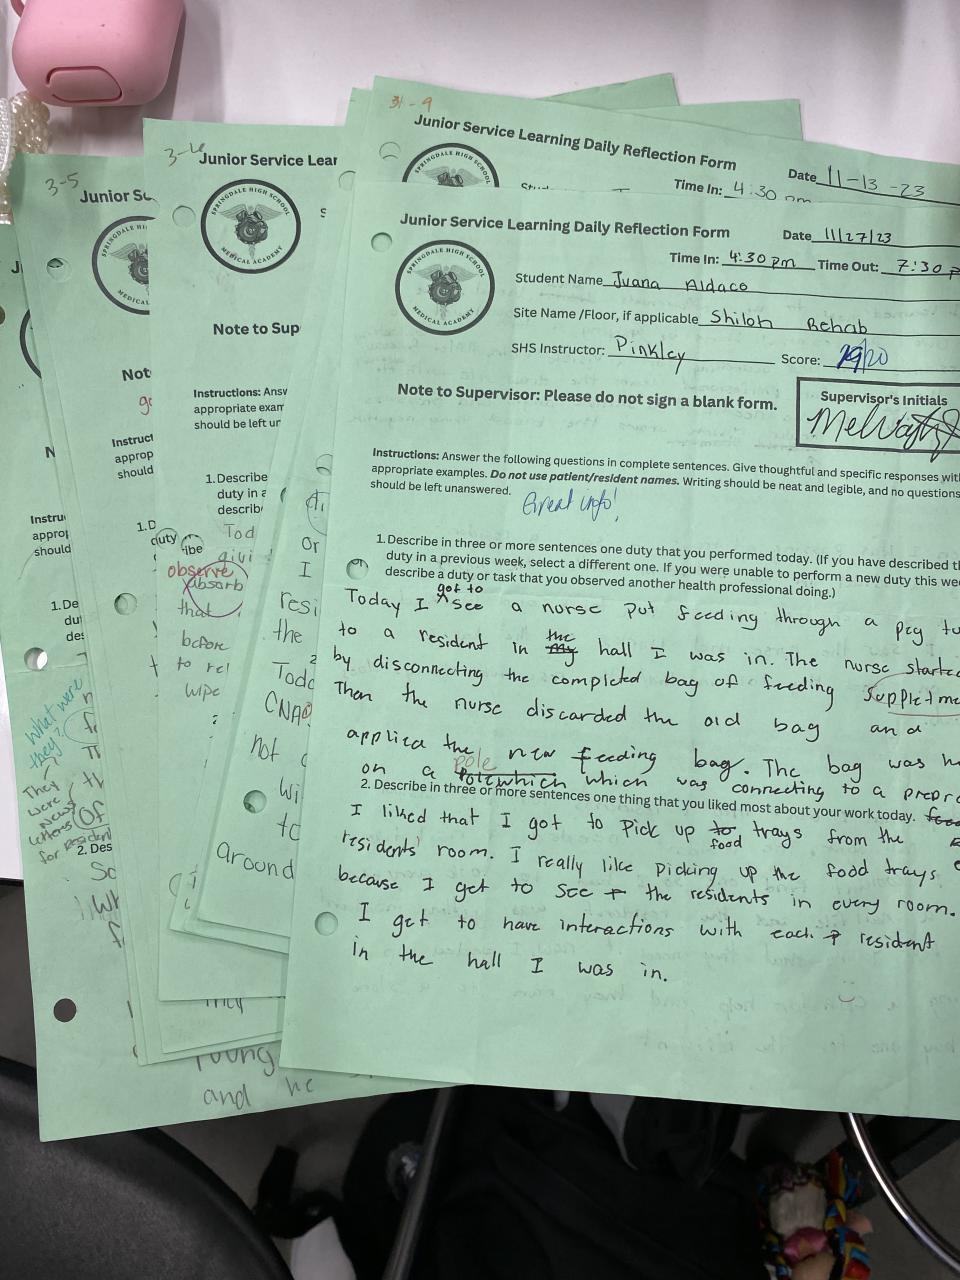 31-9
Junior Service Learning Daily Reflection Form
Date 11-13-23
Time In: 4:30 pm
3-6
Junior Service Lear
3-5
Junior Sc
SPRINGDALE HIGH SCHOOL
MEDICAL ACADEMY
Junior Service Learning Daily Reflection Form
Date 11/27/23
Time In: 4:30 pm Time Out: 7:30 p
Student Name Juana Aldaco
Site Name /Floor, if applicable Shiloh Rehab
SHS Instructor: Pinkley Score: 19/20
Note to Supervisor: Please do not sign a blank form.
Supervisor's Initials
Instructions: Answer the following questions in complete sentences. Give thoughtful and specific responses wit
appropriate examples. Do not use patient/resident names. Writing should be neat and legible, and no questions
should be left unanswered.
Great info!
1. Describe in three or more sentences one duty that you performed today. (If you have described th
duty in a previous week, select a different one. If you were unable to perform a new duty this wee
describe a duty or task that you observed another health professional doing.)
Today I got to see a nurse put feeding through a peg tu
to a resident in the hall I was in. The nurse starte
by disconnecting the completed bag of feeding suppletme
Then the nurse discarded the old bag and
applied the new feeding bag. The bag was h
on a pole which was connecting to a prepr
2. Describe in three or more sentences one thing that you liked most about your work today.
I liked that I got to pick up food trays from the
residents' room. I really like picking up the food trays
because I get to see the residents in every room.
I get to have interactions with each resident
in the hall I was in.
Note to Sup
Instructions: Answ
appropriate exam
should be left ur
1. Describe
duty in a
describ
Tod
givi
observe
absorb
that
before
to rel
wipe
Or
I
resi
the
Todo
CNA
not
wi
to
around
Not
Instruct
approp
should
1. D
duty
ibe
N
Instru
approp
should
1. De
du
des
What were
they?
They
were
News
letters
for resident
Of
2. Des
So
Wh
f
they
Young
and he